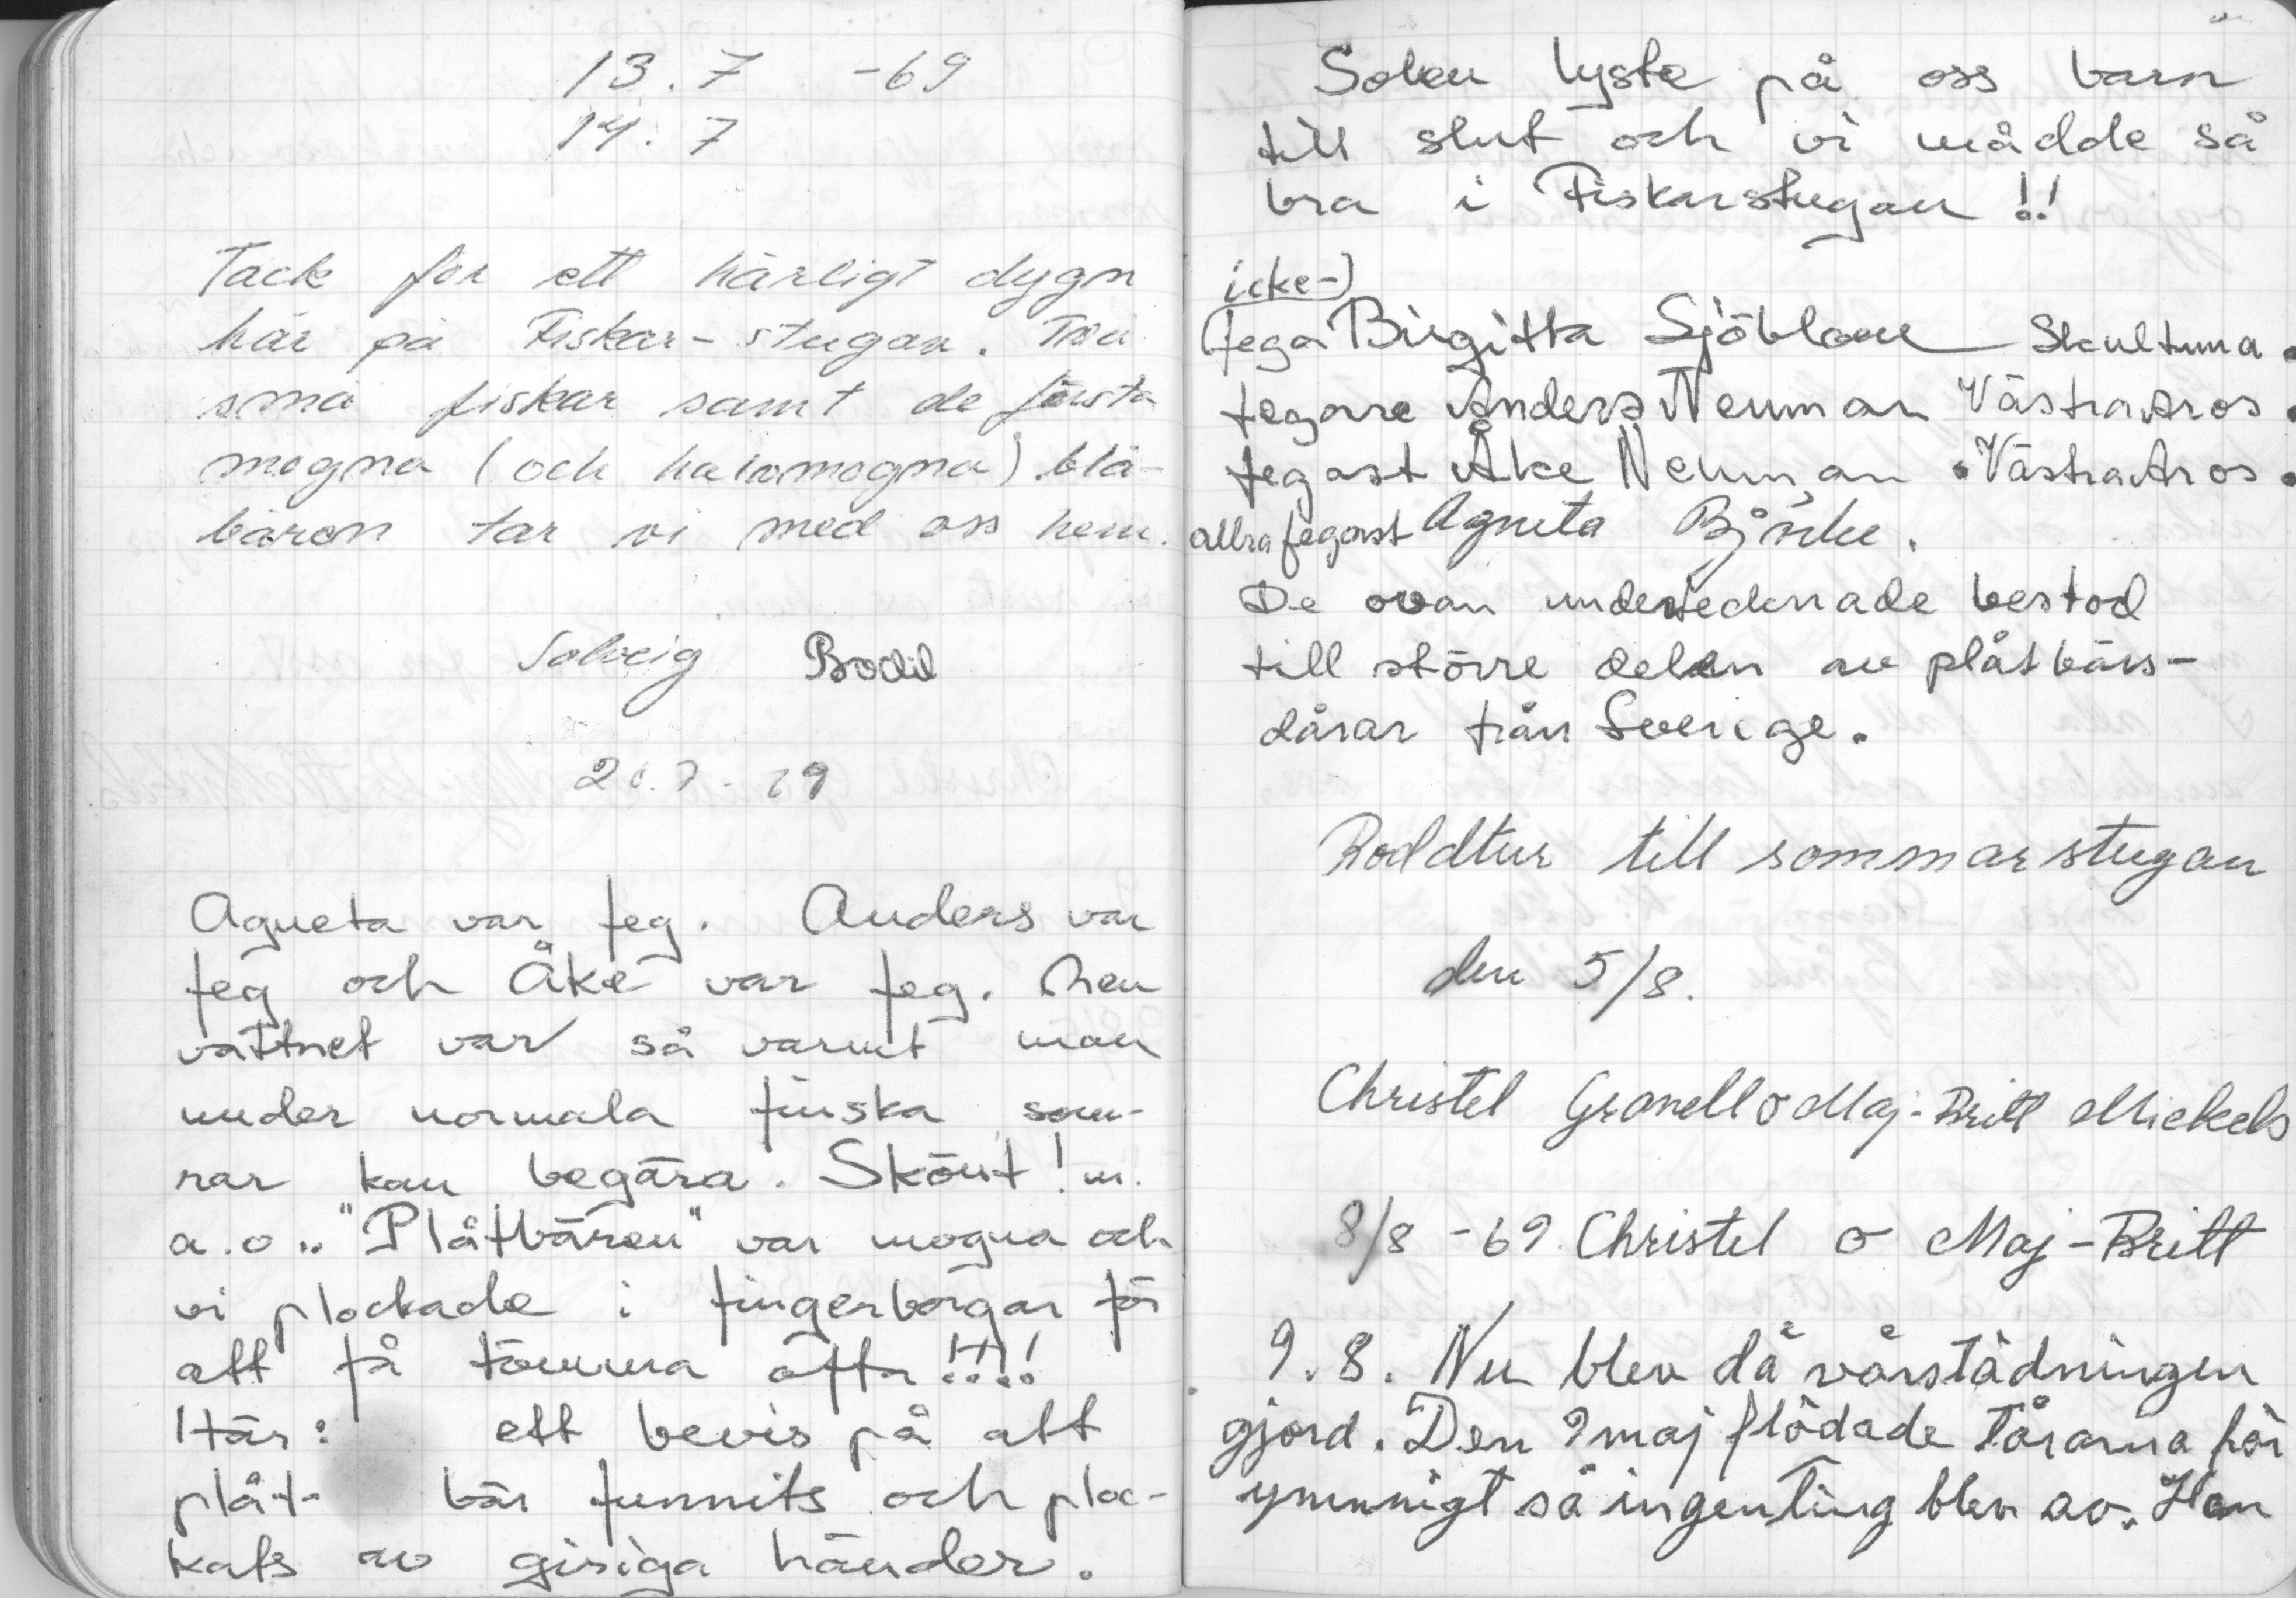 13.7 -69
14.7
Tack för ett härligt dygn
här på Fiskar-stugan. Två
små fiskar samt de första
mogna (och halvmogna) blå-
bären tar vi med oss hem.
Solveig Bodil
20.7.
Agneta var feg. Anders var
feg och Åke var feg. Men
vattnet var så varmt man
under normala finska som-
rar kan begära. Skönt! m.
a.o.. "Plåtbären" var mogna och
vi plockade i fingerborgar för
att få tömma ofta!!!!
Här: ett bevis på att
plåt- bär funnits och ploc-
kats av giriga händer.
Solen lyste på oss barn
till slut och vi mådde så
bra i Fiskarstugan!!
icke-)
(fega Birgitta Sjöblom Skultuna.
fegare Anders Neuman Västra Aros.
fegast Åke Neuman .Västra Aros.
allra fegast Agneta Björke.
De ovan undertecknade bestod
till större delen av plåtbärs-
dårar från Sverige.
Roddtur till sommarstugan
den 5/8.
Christel Granell o Maj-Britt Mickels
8/8 -69 Christel o Maj-Britt
9.8. Nu blev då vårstädningen
gjord. Den 9 maj flödade tårarna för
ymnigt så ingenting blev av. Han